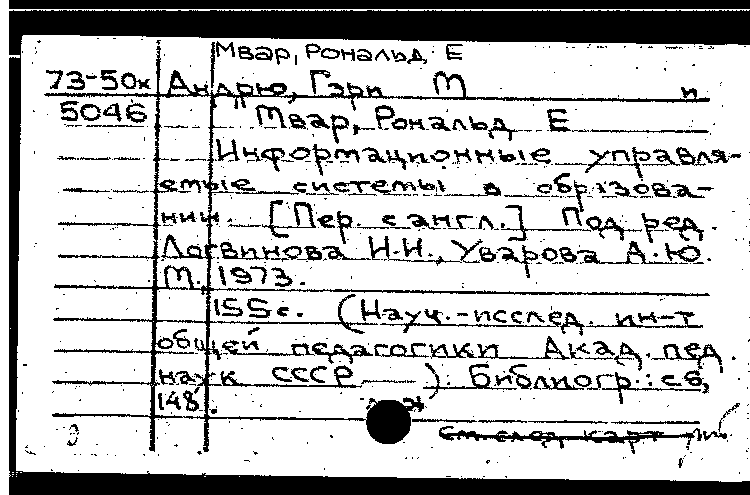 Мвар, Рональд Е
73-50к Андрю, Гэри М и
5046 Мвар, Рональд Е
Информационные управля-
емые системы в образова-
нии. [Пер. с англ.] Под ред.
Логвинова И.И., Уварова А.Ю.
М., 1973.
155с. (Науч.-исслед. ин-т
общей педагогики Акад. пед.
наук СССР —). Библиогр.: с 6,
148.
См. след. карт